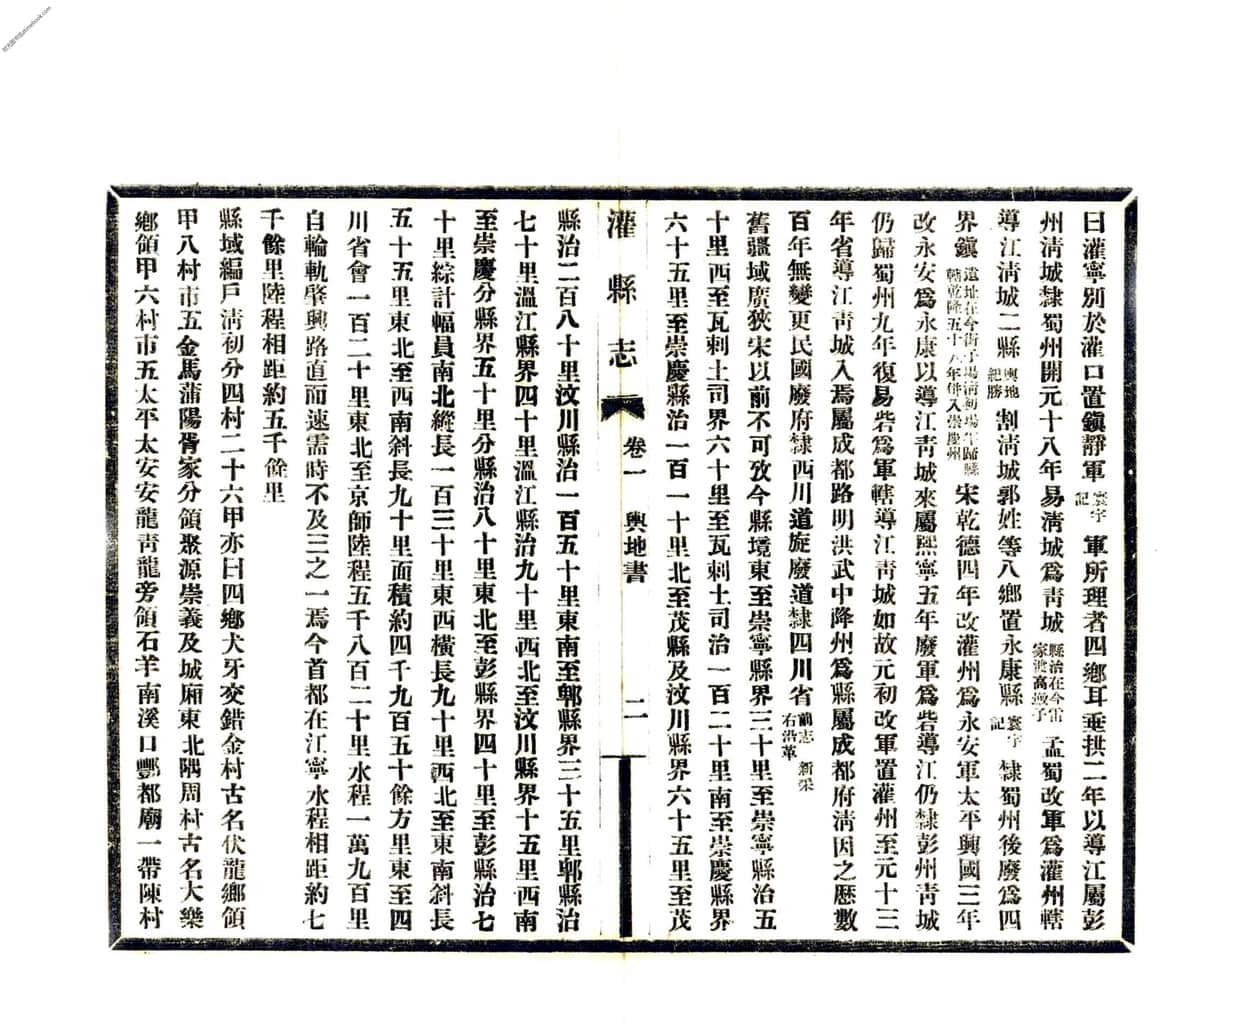 曰灌寧別於灌口置鎭靜軍寰宇記軍所理者四鄉耳垂拱二年以導江屬彭
州淸城隸蜀州開元十八年易淸城爲靑城縣治在今雷家渡高墩子孟蜀改軍爲灌州轄
導江淸城二縣輿地紀勝割淸城郭姓等八鄉置永康縣寰宇記隸蜀州後廢爲四
界鎭遺址在今街子場淸初場半歸縣轄乾隆五十八年併入崇慶州宋乾德四年改灌州爲永安軍太平興國三年
改永安爲永康以導江靑城來屬熙寧五年廢軍爲砦導江仍隸彭州靑城
仍歸蜀州九年復易砦爲軍轄導江靑城如故元初改軍置灌州至元十三
年省導江靑城入焉屬成都路明洪武中降州爲縣屬成都府淸因之歷數
百年無變更民國廢府隸西川道旋廢道隸四川省舊志 新采右沿革
舊疆域廣狹宋以前不可攷今縣境東至崇寧縣界三十里至崇寧縣治五
十里西至瓦剌土司界六十里至瓦剌土司治一百二十里南至崇慶縣界
六十五里至崇慶縣治一百一十里北至茂縣及汶川縣界六十五里至茂
灌縣志 卷一 輿地書 二
縣治二百八十里汶川縣治一百五十里東南至郫縣界三十五里郫縣治
七十里溫江縣界四十里溫江縣治九十里西北至汶川縣界十五里西南
至崇慶分縣界五十里分縣治八十里東北至彭縣界四十里至彭縣治七
十里綜計幅員南北縱長一百三十里東西橫長九十里西北至東南斜長
五十五里東北至西南斜長九十里面積約四千九百五十餘方里東至四
川省會一百二十里東北至京師陸程五千八百二十里水程一萬九百里
自輪軌肇興路直而速需時不及三之一焉今首都在江寧水程相距約七
千餘里陸程相距約五千餘里
縣域編戶淸初分四村二十六甲亦曰四鄉犬牙交錯金村古名伏龍鄉領
甲八村市五金馬蒲陽胥家分領聚源崇義及城廂東北隅周村古名大樂
鄉領甲六村市五太平太安安龍靑龍旁領石羊南溪口酆都廟一帶陳村